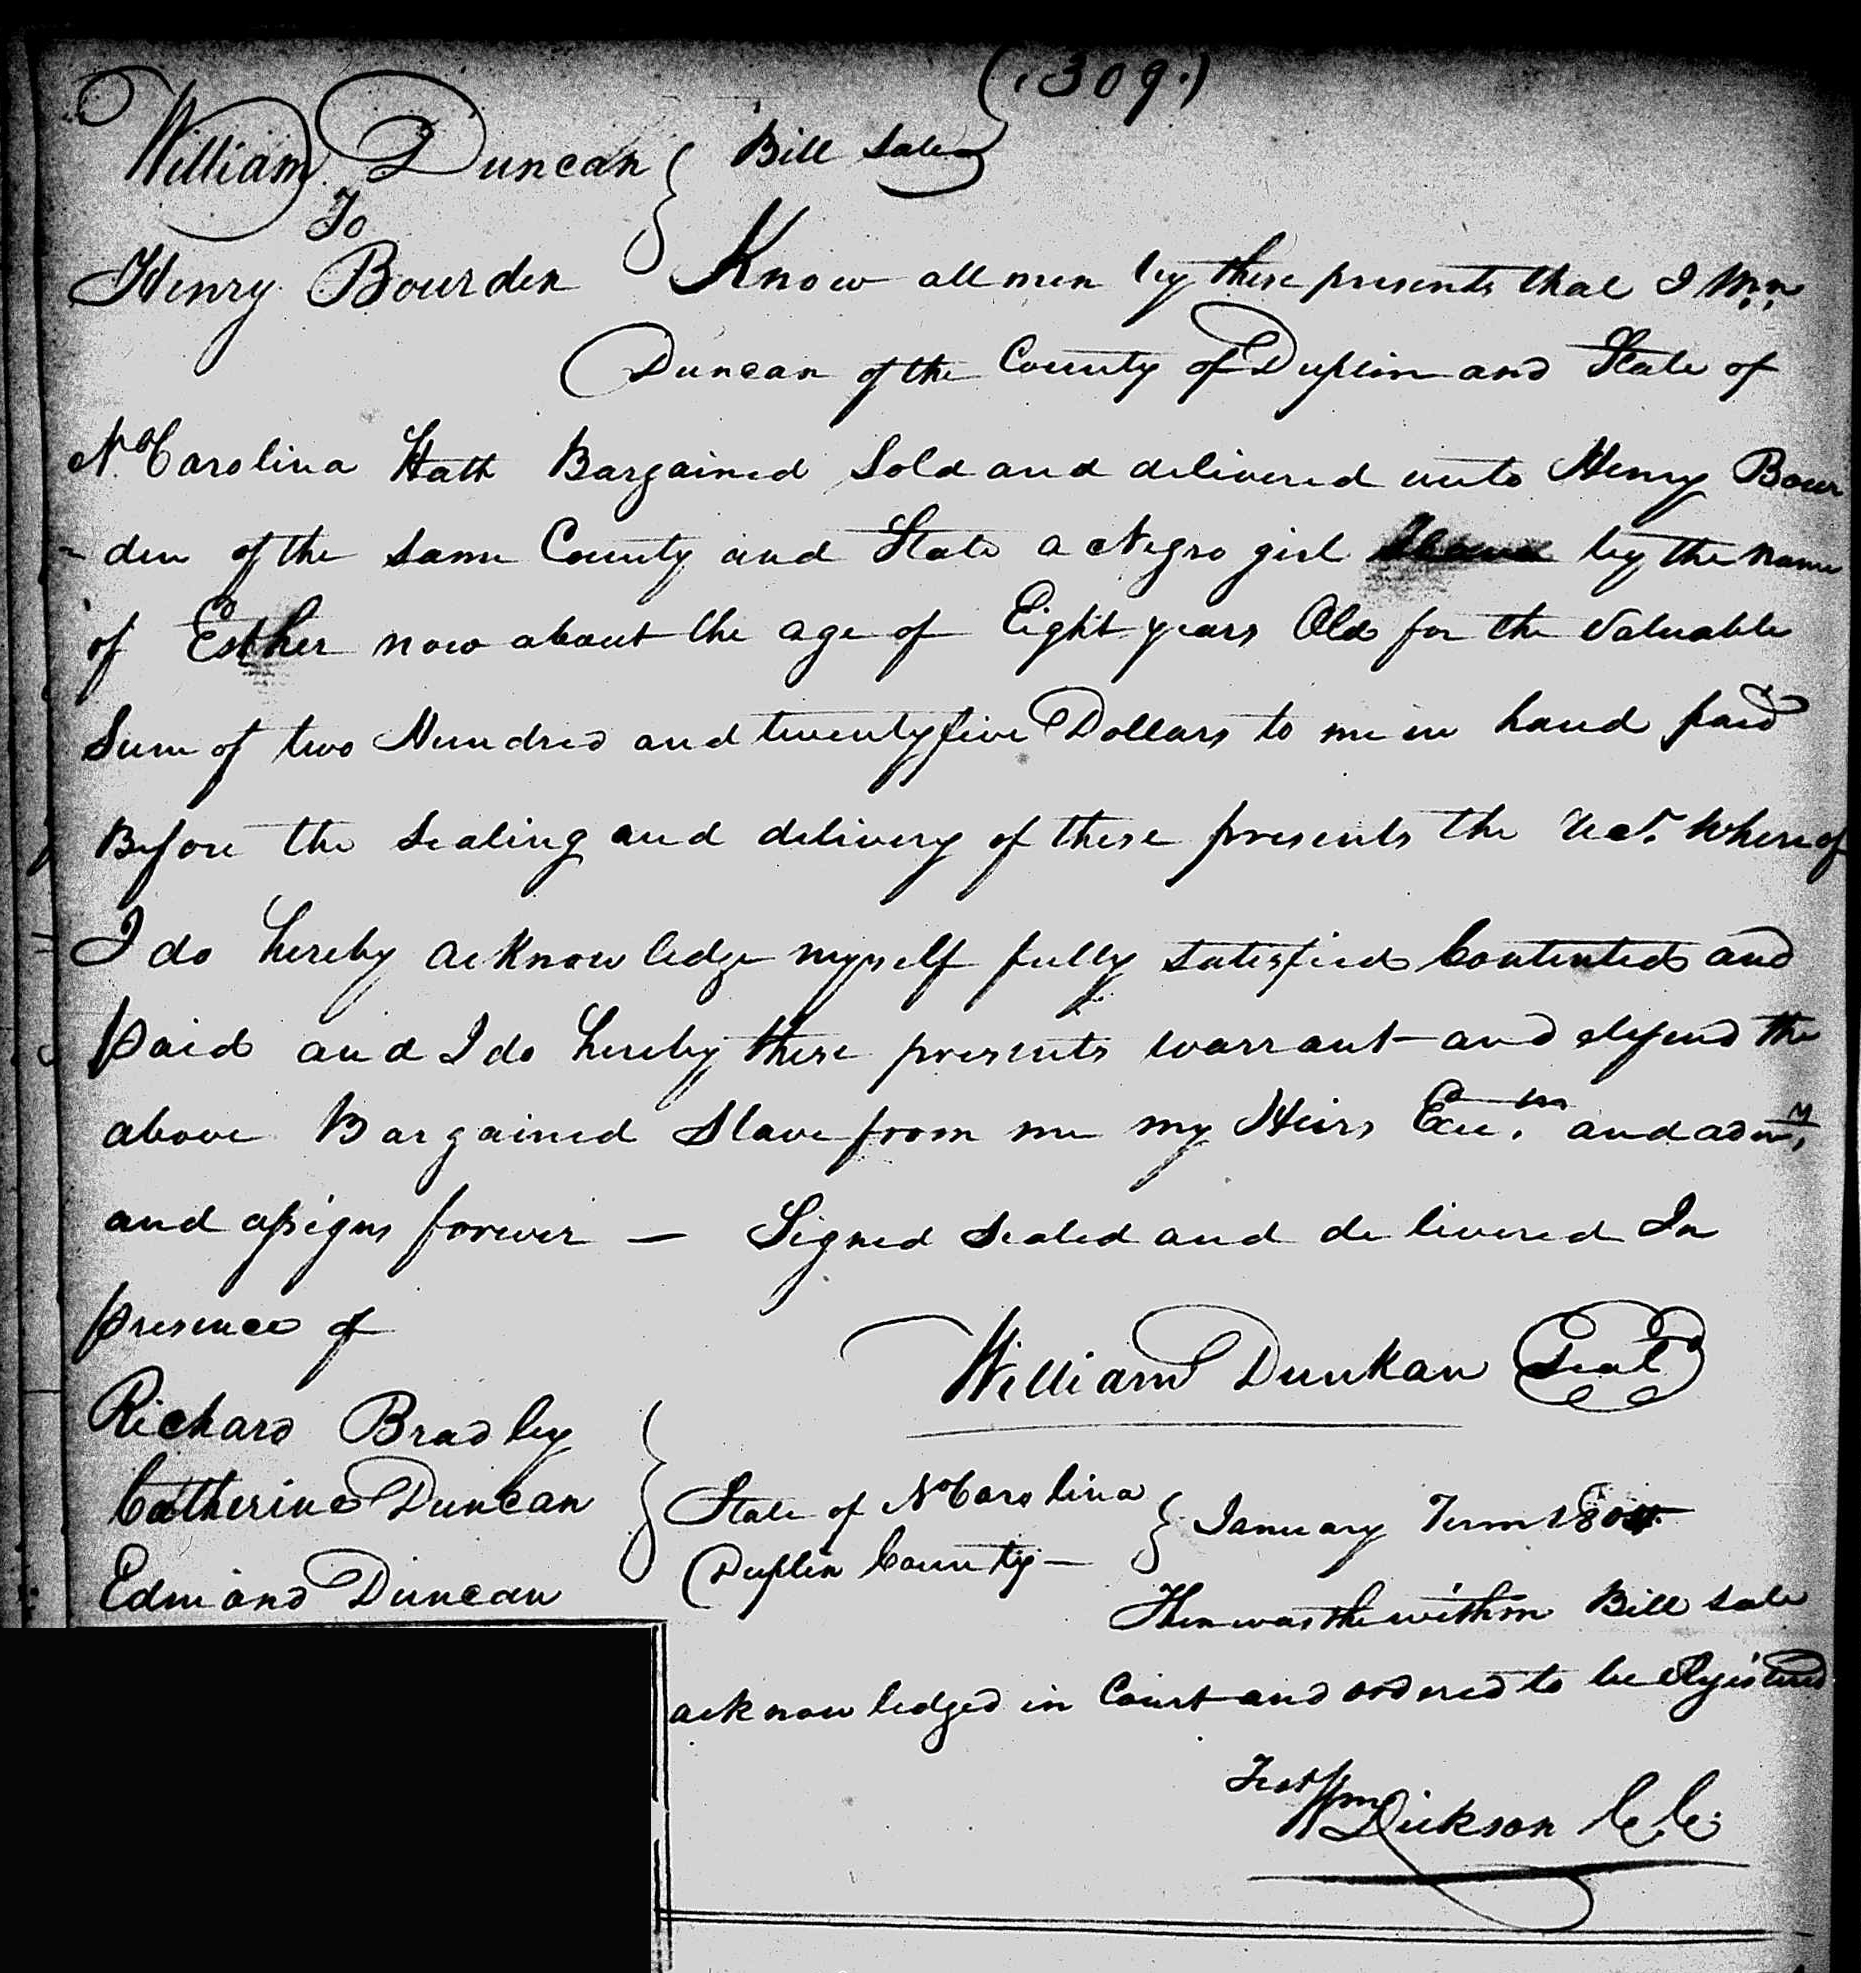 (309.)
William Duncan } Bill Sale
To
Henry Bourden Know all men by these presents that I Wm.
Duncan of the County of Duplin and State of
No Carolina Hath Bargained Sold and delivered unto Henry Bour
- den of the same County and State a Negro girl by the name
of Esther now about the age of Eight years Old for the Valuable
Sum of two Hundred and twenty five Dollars to me in hand paid
Before the Sealing and delivery of these presents the rect. Whereof
I do hereby acknowledge myself fully satisfied Contented and
Paid and I do hereby these presents warrant and defend the
above Bargained Slave from me my Heirs Exe. and adm.
and assigns forever — Signed Sealed and delivered In
presence of
William Dunkan Seal
Richard Bradley
Catherine Duncan
Edmond Duncan
State of No Carolina } January Term
Duplin County —
Then was the within Bill Sale
acknowledged in Court and ordered to be Registered
Test Wm Dickson C.C.